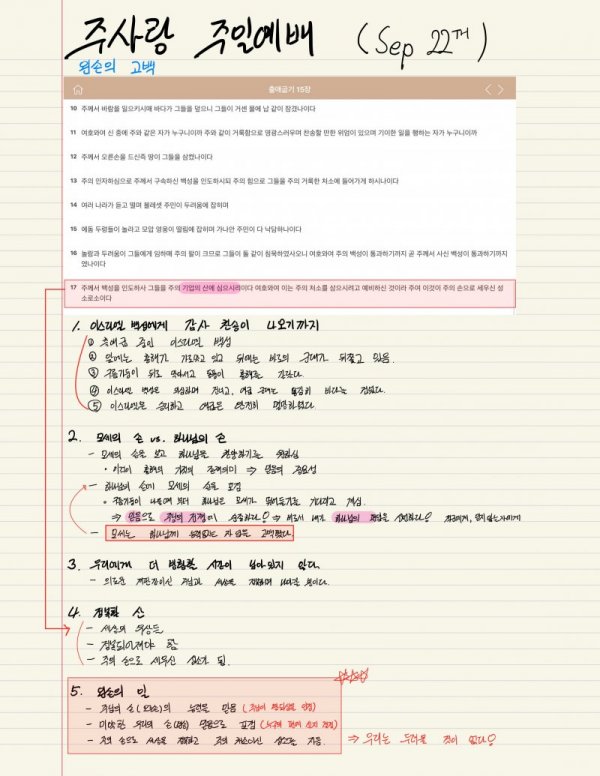 주사랑 주일예배 (Sep 22nd)
왼손의 고백
출애굽기 15장
10 주께서 바람을 일으키시매 바다가 그들을 덮으니 그들이 거센 물에 납 같이 잠겼나이다
11 여호와여 신 중에 주와 같은 자가 누구니이까 주와 같이 거룩함으로 영광스러우며 찬송할 만한 위엄이 있으며 기이한 일을 행하는 자가 누구니이까
12 주께서 오른손을 드신즉 땅이 그들을 삼켰나이다
13 주의 인자하심으로 주께서 구속하신 백성을 인도하시되 주의 힘으로 그들을 주의 거룩한 처소에 들어가게 하시나이다
14 여러 나라가 듣고 떨며 블레셋 주민이 두려움에 잡히며
15 에돔 두령들이 놀라고 모압 영웅이 떨림에 잡히며 가나안 주민이 다 낙담하나이다
16 놀람과 두려움이 그들에게 임하매 주의 팔이 크므로 그들이 돌 같이 침묵하였사오니 여호와여 주의 백성이 통과하기까지 곧 주께서 사신 백성이 통과하기까지
였나이다
17 주께서 백성을 인도하사 그들을 주의 기업의 산에 심으시리이다 여호와여 이는 주의 처소를 삼으시려고 예비하신 것이라 주여 이것이 주의 손으로 세우신 성
소로소이다
1. 이스라엘 백성에게 감사 찬송이 나오기까지
① 출애굽 중인 이스라엘 백성
② 앞에는 홍해가 가로막고 있고 뒤에는 바로의 군대가 뒤쫓고 있음.
③ 구름기둥이 뒤로 막아서고 동풍이 홍해를 갈랐다.
④ 이스라엘 백성은 건너고, 애굽 군대는
⑤ 이스라엘은 승리하고 애굽은 완전히 멸망하였다.
2. 모세의 손 vs. 하나님의 손
- 모세의 손을 보고 하나님을
• 이것이 홍해의 기적의 ⇒ 믿음의 중요성
- 하나님의 손이 모세의 손을 포갬
• 구름기둥이 하나님은 모세가 기다리고 계심.
⇒ 믿음으로 주님의 ⇒ 내가 하나님의
- 모세는 하나님께 고백했다
3. 우리에게 더 방황할 시간이 남아있지 않다.
- 의로운 재판장이신 주님과 세상을
4. 정복할 산
- 세상의 우상들
- 정복되어져야 함
- 주의 손으로 세우신 성소가 됨.
5. 왼손의 일
- 주님의 손(오른손)의 능력을 믿음
- 미약한 우리의 손(왼손) 믿음으로 포갬
- 주의 손으로 세상을 정복하고 주의 처소이신 성소를 지음. ⇒ 우리는 두려울 것이 없다!